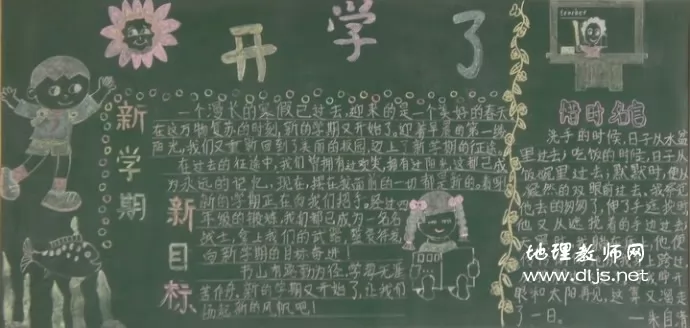 开学了
teacher
新学期
新目标
一个漫长的寒假已过去,迎来的是一个美好的春天
在这万物复苏的时刻,新的学期又开始了,迎着早晨的第一缕
阳光,我们又重新回到了美丽的校园,迈上了新学期的征途。
在过去的征途中,我们曾拥有过欢笑,拥有过阳光,这都已成
为永远的记忆,现在,摆在我面前的一切都是新的,看呀
新的学期正在向我们招手,经过四
年级的锻炼,我们都已成为一名名
战士,拿上我们的武器,
向新学期的目标奋进!
书山有路勤为径,学海无涯
苦作舟,新的学期又开始了,让我们
扬起新的风帆吧!
惜时名言
洗手的时候,日子从水盆
里过去;吃饭的时候,日子从
饭碗里过去;默默时,便从
凝然的双眼前过去,我觉察
他去的匆匆了,伸了手遮挽时
他又从遮挽着的手边过去
他便
上跨过
眼和太阳再见,这算又溜走
了一日。
—朱自清
地理教师网
www.dljs.net